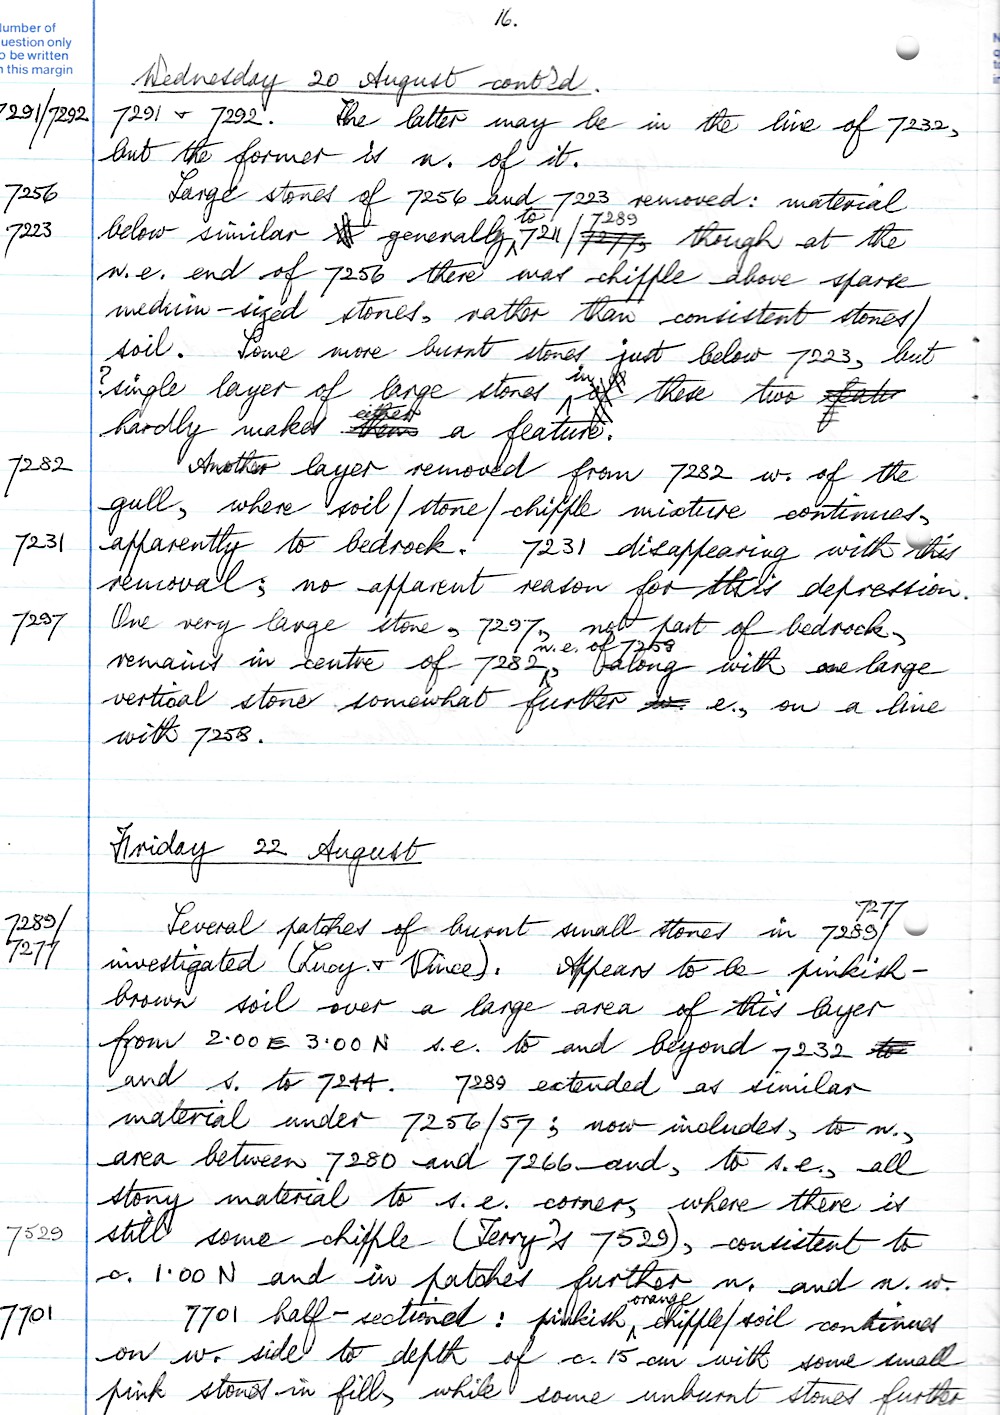 16.
Number of
question only
to be written
in this margin
Wednesday 20 August cont'd.
7291/7292 7291 + 7292. The latter may be in the line of 7232,
but the former is n. of it.
7256 Large stones of 7256 and 7223 removed: material
7223 below similar generally to 7211/7289 7277, though at the
n.e. end of 7256 there was chipple above sparse
medium-sized stones, rather than consistent stones/
soil. Some more burnt stones just below 7223, but
?single layer of large stones in of these two featu
hardly makes either them a feature.
7282 Another layer removed from 7282 w. of the
gull, where soil/stone/chipple mixture continues,
7231 apparently to bedrock. 7231 disappearing with this
removal; no apparent reason for this depression.
7297 One very large stone, 7297, not part of bedrock,
remains in centre of 7282, n.e. of 7259 along with one large
vertical stone somewhat further w. e., on a line
with 7258.
Friday 22 August
7289/ Several patches of burnt small stones in 7289/7277
7277 investigated (Lucy + Vince). Appears to be pinkish-
brown soil over a large area of this layer
from 2.00 E 3.00 N s.e. to and beyond 7232 to
and s. to 7244. 7289 extended as similar
material under 7256/57; now includes, to n.,
area between 7280 and 7266 and, to s.e., all
stony material to s.e. corner, where there is
7529 still some chipple (Terry's 7529), consistent to
c. 1.00 N and in patches further n. and n.w.
7701 7701 half-sectioned: pinkish orange chipple/soil continues
on w. side to depth of c. 15 cm with some small
pink stones in fill, while some unburnt stones further